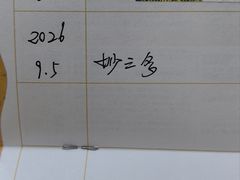 2026
9.5 妙三多